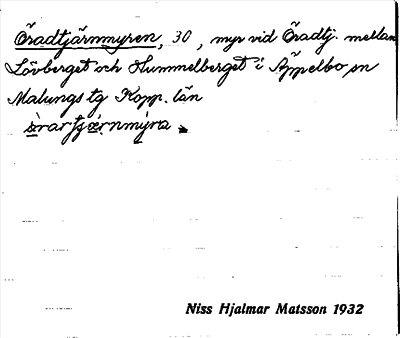 Öradtjärnmyren, 30, myr vid Öradtj. mellan
Lövberget och Hummelberget i Äppelbo sn
Malungs tg Kopp. län
Niss Hjalmar Matsson 1932